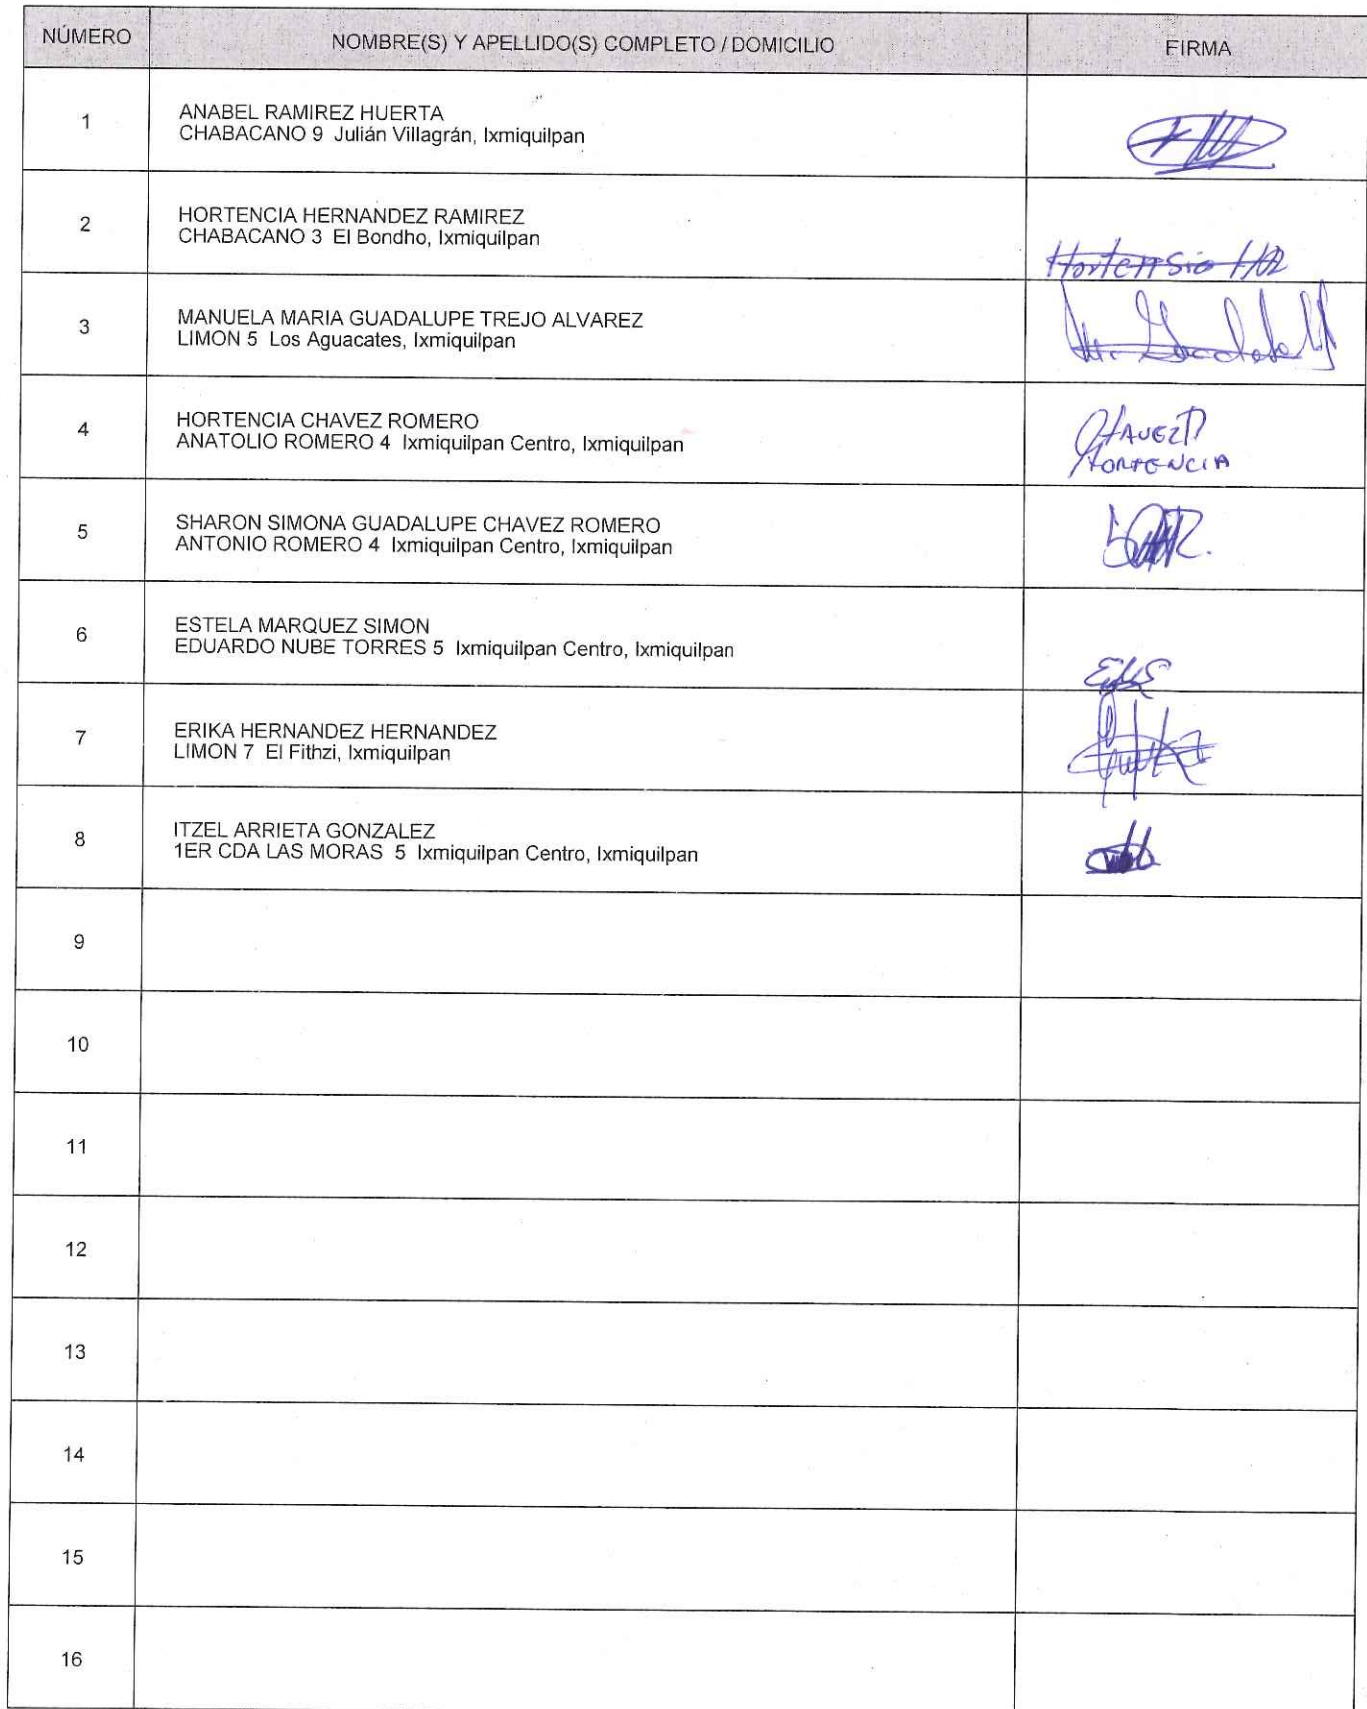 NÚMERO NOMBRE(S) Y APELLIDO(S) COMPLETO / DOMICILIO FIRMA
1 ANABEL RAMIREZ HUERTA
CHABACANO 9 Julián Villagrán, Ixmiquilpan
2 HORTENCIA HERNANDEZ RAMIREZ
CHABACANO 3 El Bondho, Ixmiquilpan
Hortensia HR
3 MANUELA MARIA GUADALUPE TREJO ALVAREZ
LIMON 5 Los Aguacates, Ixmiquilpan
4 HORTENCIA CHAVEZ ROMERO
ANATOLIO ROMERO 4 Ixmiquilpan Centro, Ixmiquilpan
CHAVEZ R
HORTENCIA
5 SHARON SIMONA GUADALUPE CHAVEZ ROMERO
ANTONIO ROMERO 4 Ixmiquilpan Centro, Ixmiquilpan
6 ESTELA MARQUEZ SIMON
EDUARDO NUBE TORRES 5 Ixmiquilpan Centro, Ixmiquilpan
7 ERIKA HERNANDEZ HERNANDEZ
LIMON 7 El Fithzi, Ixmiquilpan
8 ITZEL ARRIETA GONZALEZ
1ER CDA LAS MORAS 5 Ixmiquilpan Centro, Ixmiquilpan
9
10
11
12
13
14
15
16